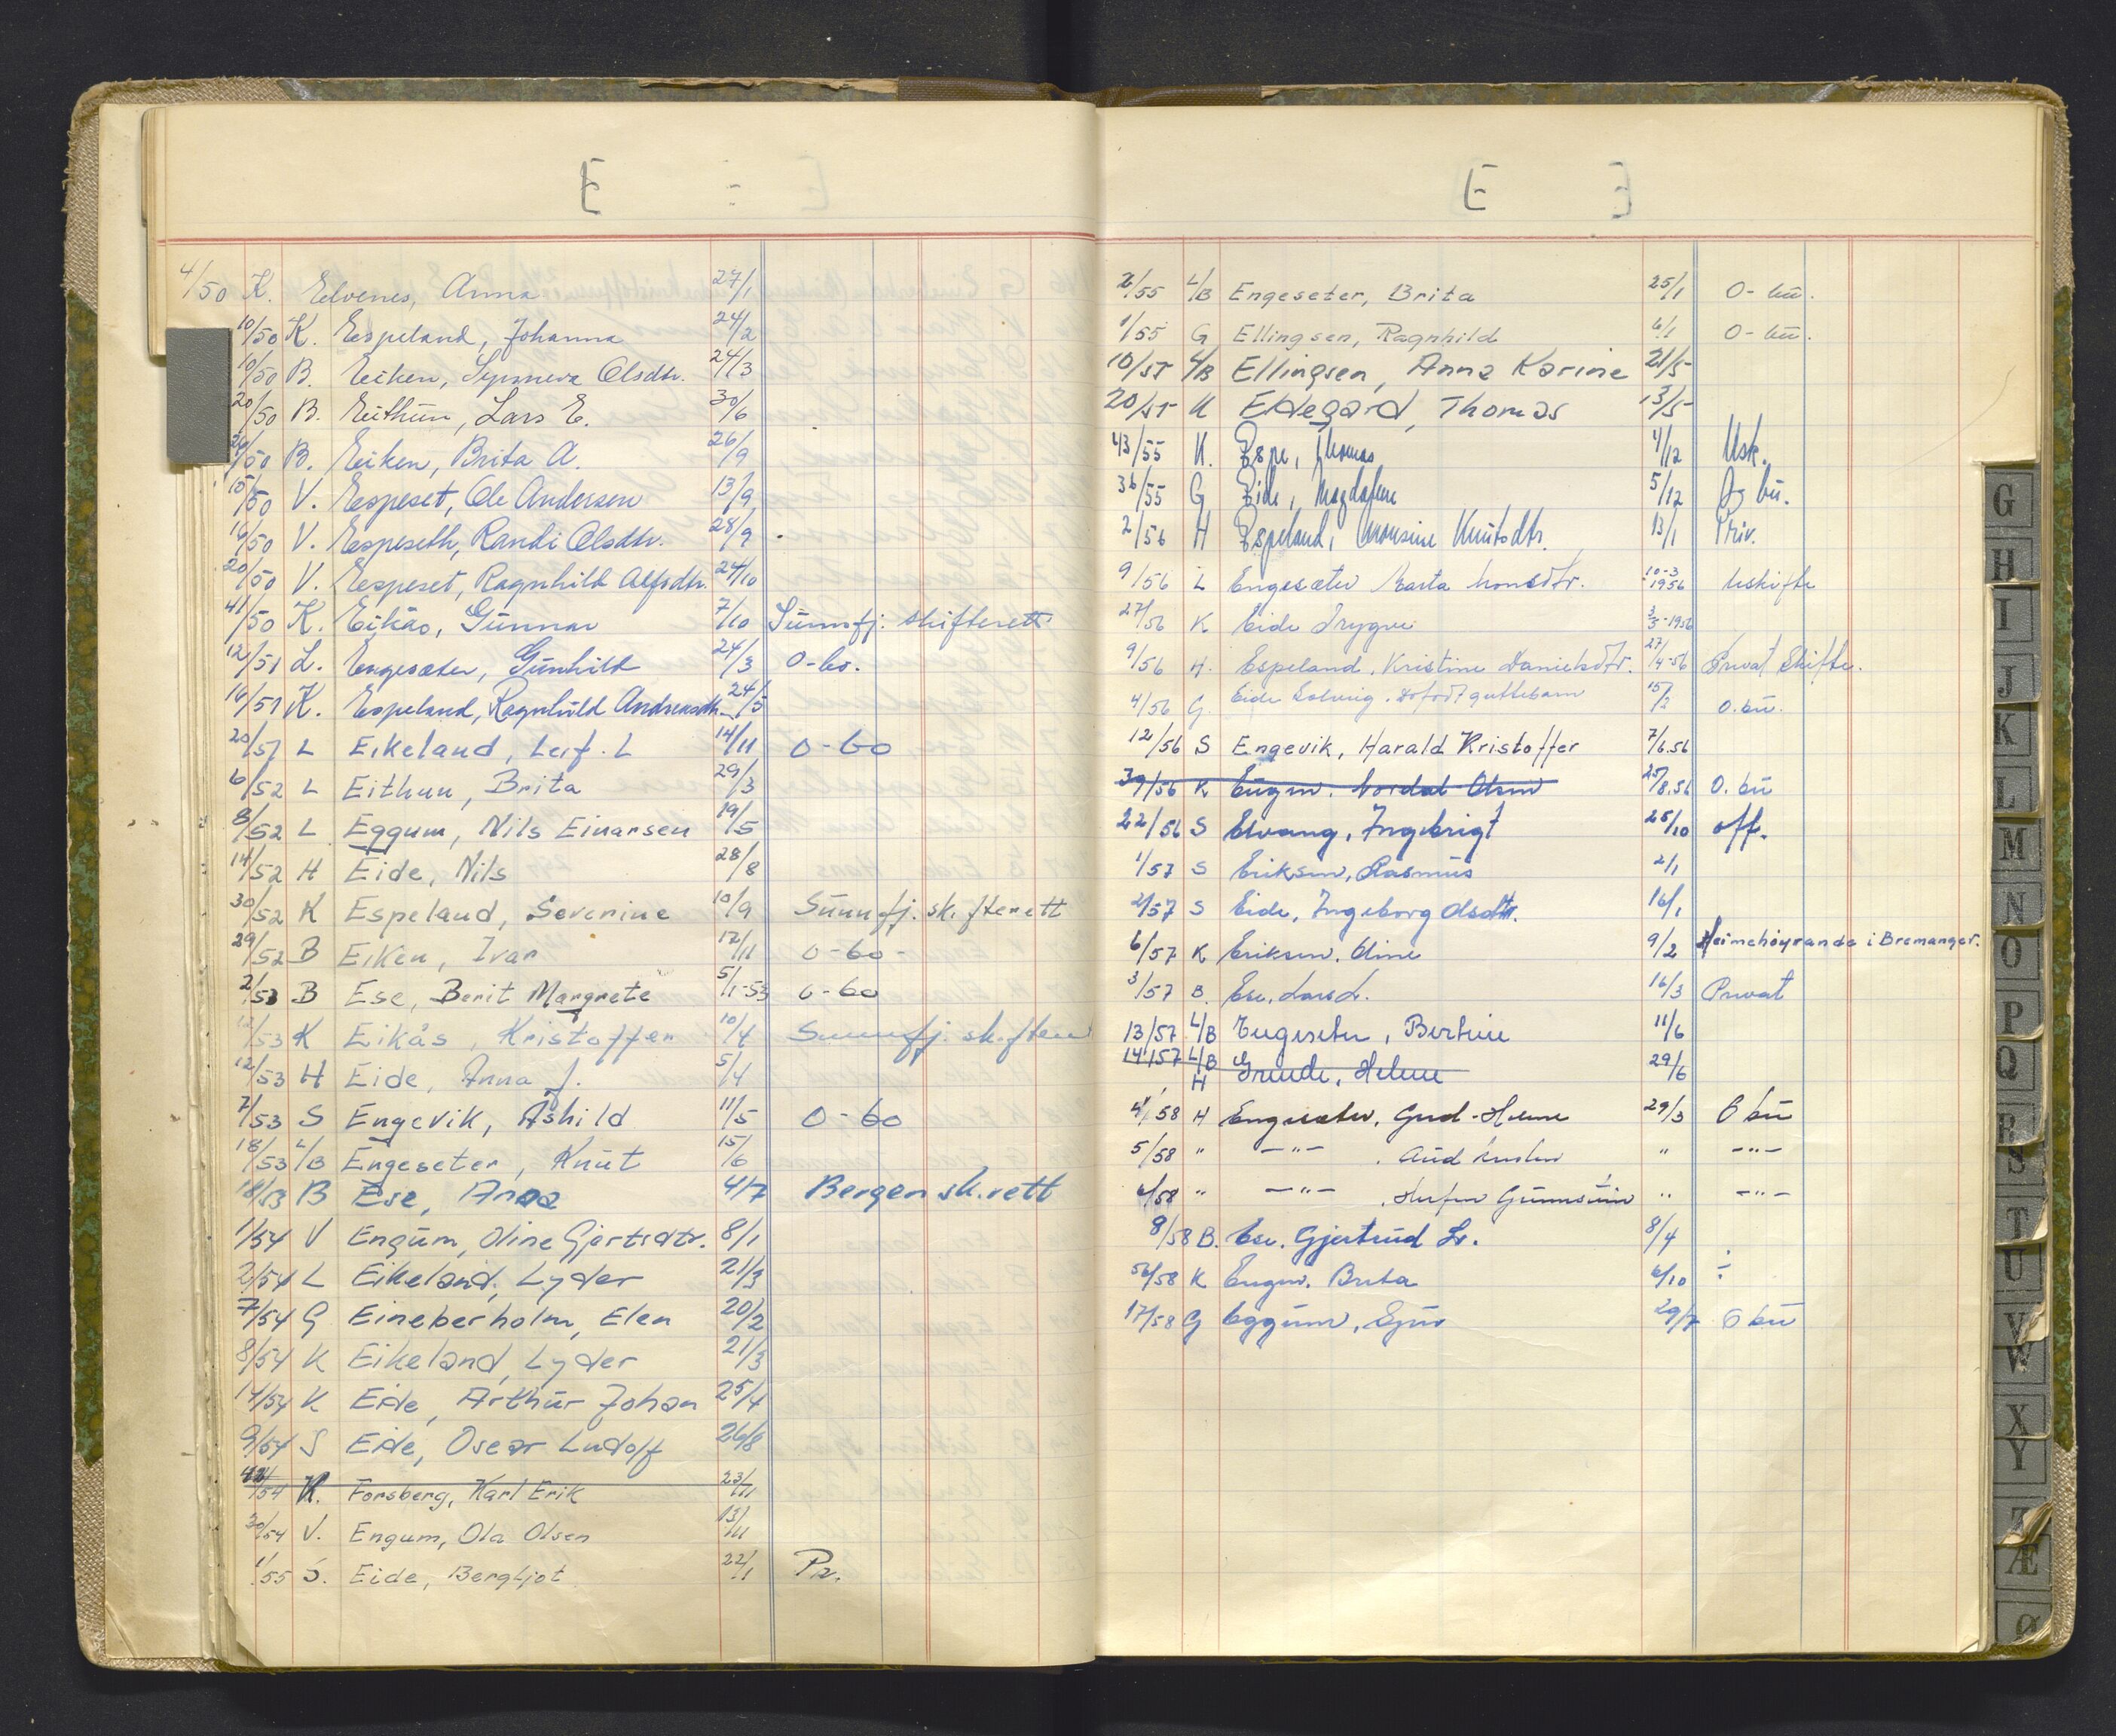 E
4/50 K. Elvenes, Anna 27/1
10/50 K. Espeland, Johanna 24/2
10/50 B. Eiken, Synneva Olsdtr. 24/3
20/50 B. Eithun, Lars E. 30/6
26/50 B. Eiken, Brita A. 26/9
15/50 V. Espeset, Ole Andersen 13/9
16/50 V. Espeseth, Randi Olsdtr. 28/9
20/50 V. Espeset, Ragnhild Alfsdtr. 24/10
41/50 K. Eikås, Gunnar 7/10 Sunnfj. skifterett
12/51 L. Engesæter, Gunhild 24/3 O-bo.
16/51 K. Espeland, Ragnhild Andreasdtr. 24/5
20/51 L Eikeland, Leif. L 14/11 O-bo
6/52 L Eithun, Brita 29/3
8/52 L Eggum, Nils Einarsen 19/5
14/52 H Eide, Nils 28/8
30/52 K Espeland, Severine 10/9 Sunnfj. skifterett
29/52 B Eiken, Ivar 12/11 O-bo-
2/53 B Ese, Berit Margrete 5/1-53 O-bo
12/53 K Eikås, Kristoffer 10/4 Sunnfj. skifter
12/53 H Eide, Anna J. 5/4
7/53 S Engevik, Åshild 11/5 O-bo
18/53 L/B Engeseter, Knut 15/6
18/53 B Ese, Anna 4/7 Bergen sk.rett
1/54 V Engum, Oline Gjertsdtr. 8/1
2/54 L Eikeland, Lyder 21/3
7/54 G Eineberholm, Elen 20/2
8/54 K Eikeland, Lyder 21/3
14/54 K Eide, Arthur Johan 25/4
9/54 S Eide, Oscar Ludolf 26/8
/54 K. Forsberg, Karl Erik 23/11
30/54 V. Engum, Ola Olsen 13/11
1/55 S. Eide, Bergljot 22/1 Pr.
E
2/55 L/B Engeseter, Brita 25/1 O-bu.
1/55 G Ellingsen, Ragnhild 6/1 O-bu.
10/55 L/B Ellingsen, Anna Karine 21/5
20/55 K Eldegard, Thomas 13/5
43/55 K. Espe, Thomas 4/12 Usk.
36/55 G Eide, Magdalene 5/12 O bu.
2/56 H Espeland, Monsine Knutsdtr. 13/1 Priv.
9/56 L Engesæter Marta Monsdtr. 10-3-1956 Uskifte
27/56 K Eide Trygve 3/5-1956
9/56 H. Espeland, Kristine Danielsdtr. 27/4-56 Privat Skifte.
4/56 G. Eide Solveig, dødfødt guttebarn 15/2 O.bu.
12/56 S Engevik, Harald Kristoffer 7/6.56
39/56 K Eugen. Nordal Olsen 25/8.56 O. bu
22/56 S Elvang, Ingebrigt 25/10 off.
1/57 S Eriksen, Rasmus 2/1
2/57 S Eide, Ingeborg Olsdtr. 16/1
6/57 K Eriksen. Oline 9/2 Heimehøyrande i Bremanger.
3/57 B. Ese, Lars L. 16/3 Privat
13/57 L/B Engeseter, Bertine 11/6
14/57 L/B H Grinde, Helene 29/6
4/58 H Engesæter, Gud-Helene 29/3 O bu
5/58 " —"— . Aud " —"—
6/58 " —"— . " —"—
8/58 B. Ese. Gjertrud L. 8/4
56/58 K Eugen. Brita 6/10 ÷
17/58 G Eggum, Sjur 29/7 O bu
G
H
I
J
K
L
M
N
O
P
Q
R
S
T
U
V
W
X
Y
Z
Æ
Ø